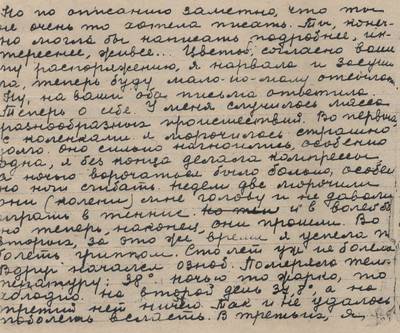 Но по описанию заметно, что ты
не очень то хотела писать. Ты, конеч-
но могла бы написать подробнее, ин-
тереснее, живее... Цветы, согласно ваше-
му распоряжению, я нарвала и засуши-
ла, теперь буду мало-по-малу отсылать.
Ну, на ваши оба письма ответила.
Теперь о себе. У меня случилось масса
разнообразных происшествий. Во первых
с коленками я морочилась страшно
долго, они сильно нагноились, особенно
одна, я без конца делала компрессы,
а ночью ворочаться было больно, особен-
но ноги сгибать. Недели две морочили
они (колени) мне голову и не давали
играть в теннис. и в волейбол
но теперь, наконец, они прошли. Во
вторых, за это же время я успела по-
болеть гриппом. Столем уж не болела.
Вдруг начался озноб. Померяла тем-
пературу: 38°. Ночью то жарко, то
холодно. На второй день 37,8°, а на
третий ней ничего. Так и не удалось
поболеть всласть. В третьих, я